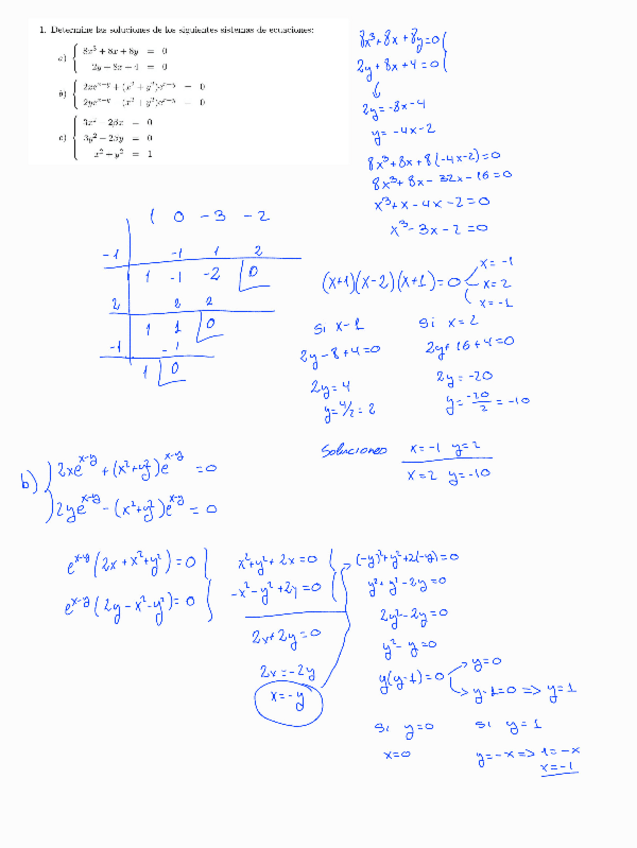 1. Determine las soluciones de los siguientes sistemas de ecuaciones:
a) { 8x³ + 8x + 8y = 0
2y + 8x + 4 = 0
b) { 2xe^{x−y} + (x² + y²)e^{x−y} = 0
2ye^{x−y} − (x² + y²)e^{x−y} = 0
c) { 3x² − 2βx = 0
3y² − 2βy = 0
x² + y² = 1
8x³+8x+8y=0
2y+8x+4=0
2y=-8x-4
y=-4x-2
8x³+8x+8(-4x-2)=0
8x³+8x-32x-16=0
x³+x-4x-2=0
x³-3x-2=0
1 0 -3 -2
-1 -1 1 2
1 -1 -2 0
2 2 2
1 1 0
-1 -1
1 0
(x+1)(x-2)(x+1)=0
x=-1
x=2
x=-1
Si x-1
2y-8+4=0
2y=4
y=4/2=2
Si x=2
2y+16+4=0
2y=-20
y=-20/2=-10
Soluciones x=-1 y=2
x=2 y=-10
b) { 2xe^{x-y}+(x²+y²)e^{x-y}=0
2ye^{x-y}-(x²+y²)e^{x-y}=0
e^{x-y}(2x+x²+y²)=0
e^{x-y}(2y-x²-y²)=0
x²+y²+2x=0
-x²-y²+2y=0
2x+2y=0
2x=-2y
x=-y
(-y)²+y²+2(-y)=0
y²+y²-2y=0
2y²-2y=0
y²-y=0
y(y-1)=0
y=0
y-1=0 => y=1
Si y=0
x=0
Si y=1
y=-x => 1=-x
x=-1